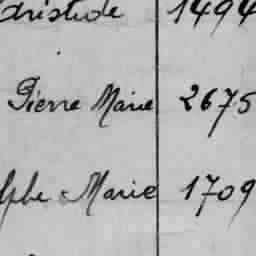 Aristide 1494
Pierre Marie 2675
Marie 1709